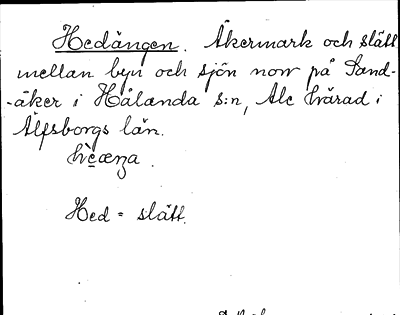 Hedängen. Åkermark och slätt
mellan byn och sjön norr på Sand-
-åker i Hålanda s:n, Ale härad i
Älfsborgs län.
Hed = slätt.